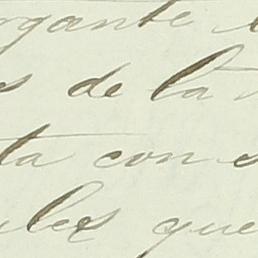 rgante
s de la
ta con s
ules que